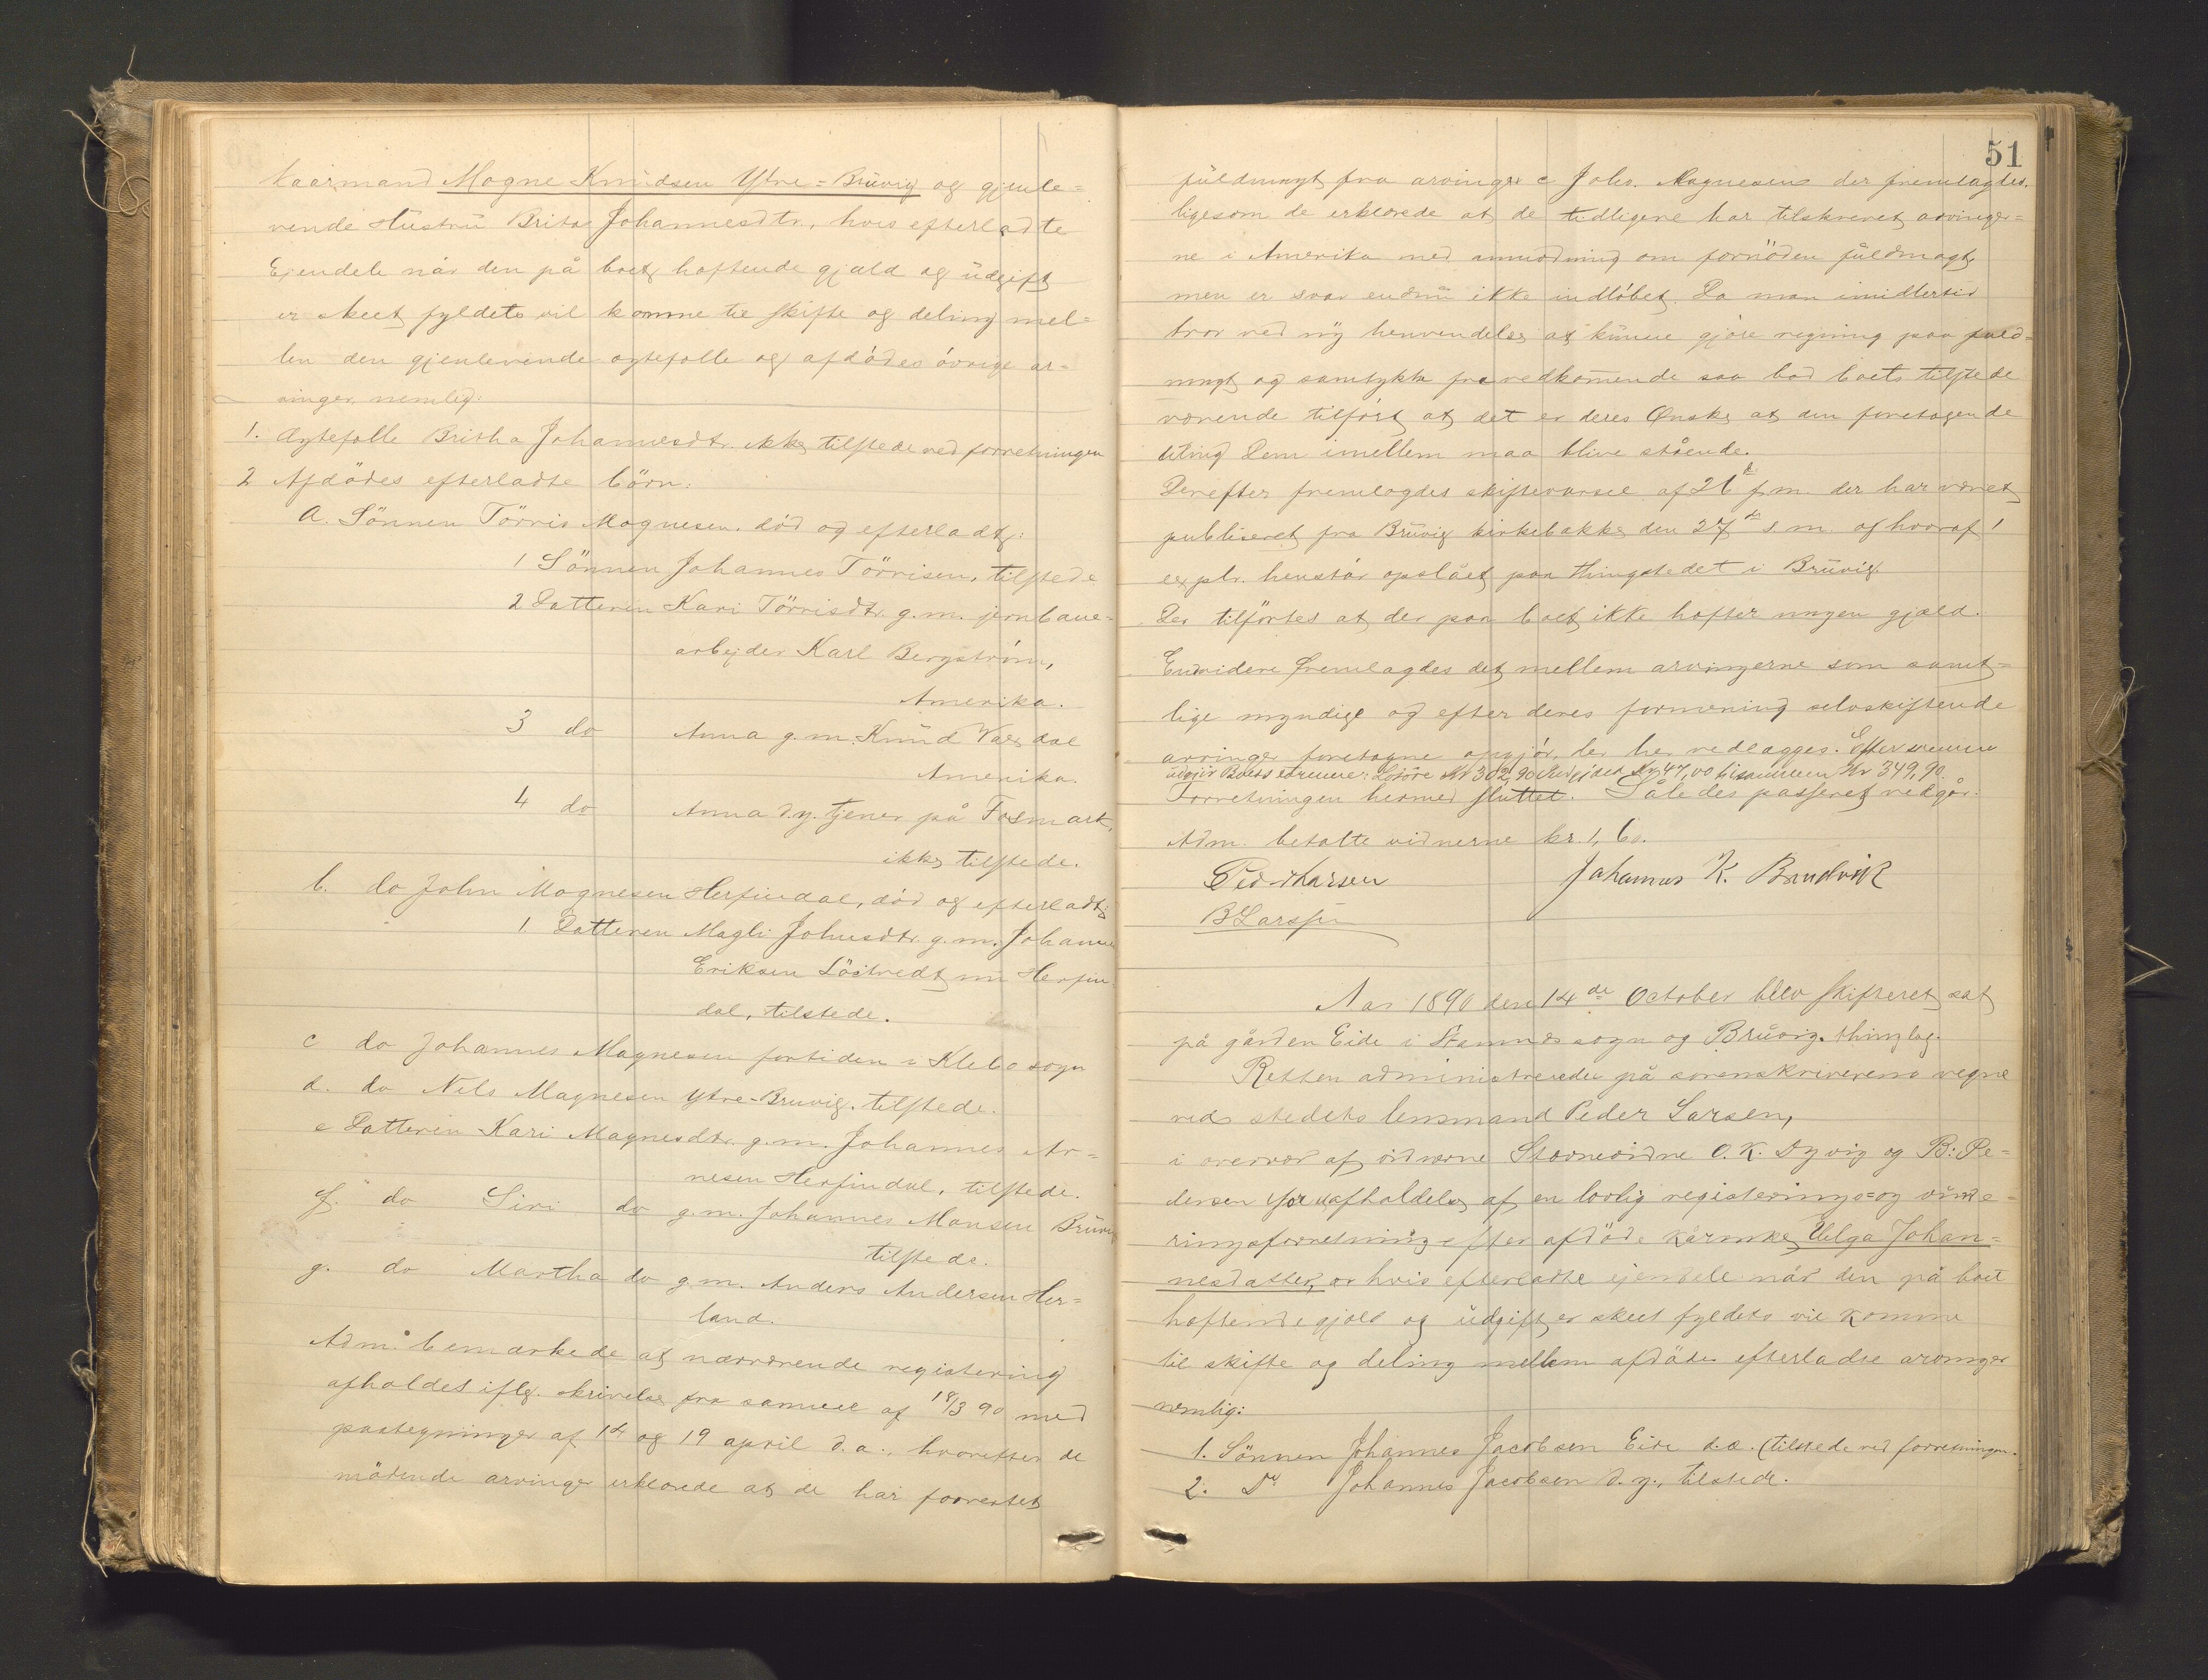 kaarmand Magne Knudsen Ytre=Bruvig og gjenle=
vende Hustru Brita Johannesdtr., hvis efterladte
Ejendele når den på boet heftende gjæld og udgift
er skeet fyldets vil komme til skifte og deling mel=
len den gjenlevende ægtefælle og afdødes øvrige ar=
vinger, nemlig:
1. Ægtefælle Britha Johannesdtr. ikke tilstede ved forretningen
2 Afdødes efterladte börn:
a. Sönnen Törris Magnesen, död og efterladt:
1 Sönnen Johannes Törrisen, tilstede
2 Datteren Kari Törrisdtr. g.m. jernbane=
arbejder Karl Bergström,
Amerika.
3 do Anna g.m. Knud
Amerika.
4 do Anna d.y. tjener på Fosmark,
ikke tilstede.
b. do John Magnesen Herfindal, død og efterladt:
1. Datteren Magli Johnsdtr. g.m. Johannes
Eriksen nu Herfin
dal, tilstede.
c do Johannes Magnesen fortiden i Klebo sogn
d. do Nels Magnesen Ytre-Bruvig, tilstede.
e Datteren Kari Magnesdtr. g.m. Johannes Ar=
nesen Herfindal, tilstede.
f. do Siri do g.m. Johannes Monsen Bruvig
tilstede.
g. do Martha do g.m. Anders Andersen Her=
land.
Adm. bemærkede at nærværende registering
afholdes iflg. skrivelse fra samme af 18/3 90 med
paategninger af 14 og 19 april d.a., hvorefter de
mødende arvinger erklærede at de har forventet
51
fuldmagt fra arvinger c Johs. Magnesen der fremlagdes.
ligesom de erklærede at de tidligere har tilskrevet arvinger=
ne i Amerika med anmodning om fornöden fuldmagt
men er svar endnu ikke indløbet. Da man imidlertid
tror ved ny henvendelse at kunne gjöre regning paa fuld=
magt og samtykke fra vedkommende saa bad boets tilstede
værende tilført at det er deres Ønske at den foretagende
utlng Dem imellem maa blive stående.
Derefter fremlagdes skiftevarsel af 26 f.m. der har været
publiseret fra Bruvig kirkebakke den 27de s m og hvoraf 1
explr. henstår opslået paa thingstedet i Bruvig.
Der tilförtes at der paa boet ikke hefter nogen gjæld.
Endvidere fremlagdes det mellem arvingerne som samt=
lige myndige og efter deres formening selvskiftende
arvinger foretagne opgjör, der her vedlægges. Efter samme
udgjör Boets : Løsöre Kr 302,90 Kr 47,00 tilsammen Kr 349,90.
Forretningen hermed sluttet. Således passeret vedgår:
Adm. betalte vidnerne kr. 1,60.
Ped. Larsen Johannes K. Bruvik
B Larssen
Aar 1890 den 14de October blev skifteret sat
på gården Eide i Stamnes sogn og Bruvig thinglag.
Retten administreredes på sorenskriverens vegne
ved stedets lensmand Peder Larsen,
i overvær af vidnerne Stævnevidne O. K. Dyvig og B: Pe=
dersen for afholdelse af en lovlig registerings=og vurde=
ringsforretning efter afdöde kårenke Helga Johan=
nesdatter, hvis efterladte ejendele når den på boet
heftende gjæld og udgift er skeet fyldets vil komme
til skifte og deling mellem afdödes efterladte arvinger
nemlig:
1. Sönnen Johannes Jacobsen Eide d.æ. (tilstede ved forretningen.
2. Do Johannes Jacobsen d.y., tilstede.